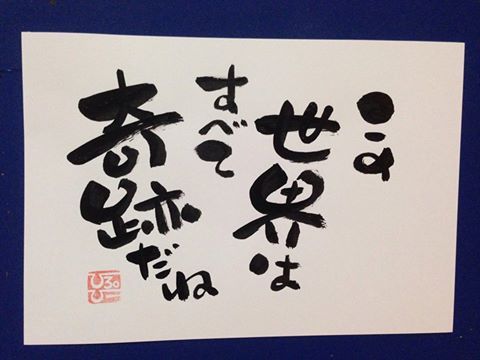 この
世界は
すべて
奇跡だね